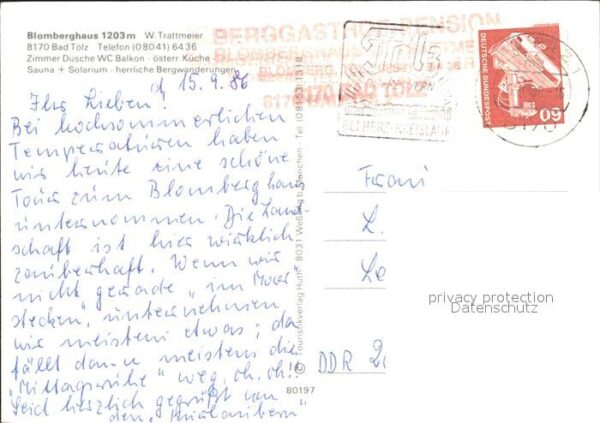 Blomberghaus 1203m W. Trattmeier
8170 Bad Tölz Telefon (08041) 6436
Zimmer Dusche WC Balkon - österr. Küche
Sauna + Solarium - herrliche Bergwanderungen
BERGGASTHOF-PENSION
BLOMBERGHAUS
8170 BAD TÖLZ
BEI HERZ-KREISLAUF
DEUTSCHE BUNDESPOST
60
d 15.4.86
Ihr Lieben!
Bei hochsommerlichen
Temperaturen haben
wir heute eine schöne
Tour zum Blomberghaus
unternommen. Die Land-
schaft ist hier wirklich
zauberhaft. Wenn wir
nicht gerade "im Moor
stecken", unternehmen
wir meistens etwas; da
fällt dann meistens die
"Mittagsruhe" weg, oh, oh!!
Seid herzlich gegrüßt von
den
Frani
L.
Le
DDR
© Touristikverlag Huff · 8031 Weßling b. München · Tel. (08153) 1318
80197
privacy protection
Datenschutz